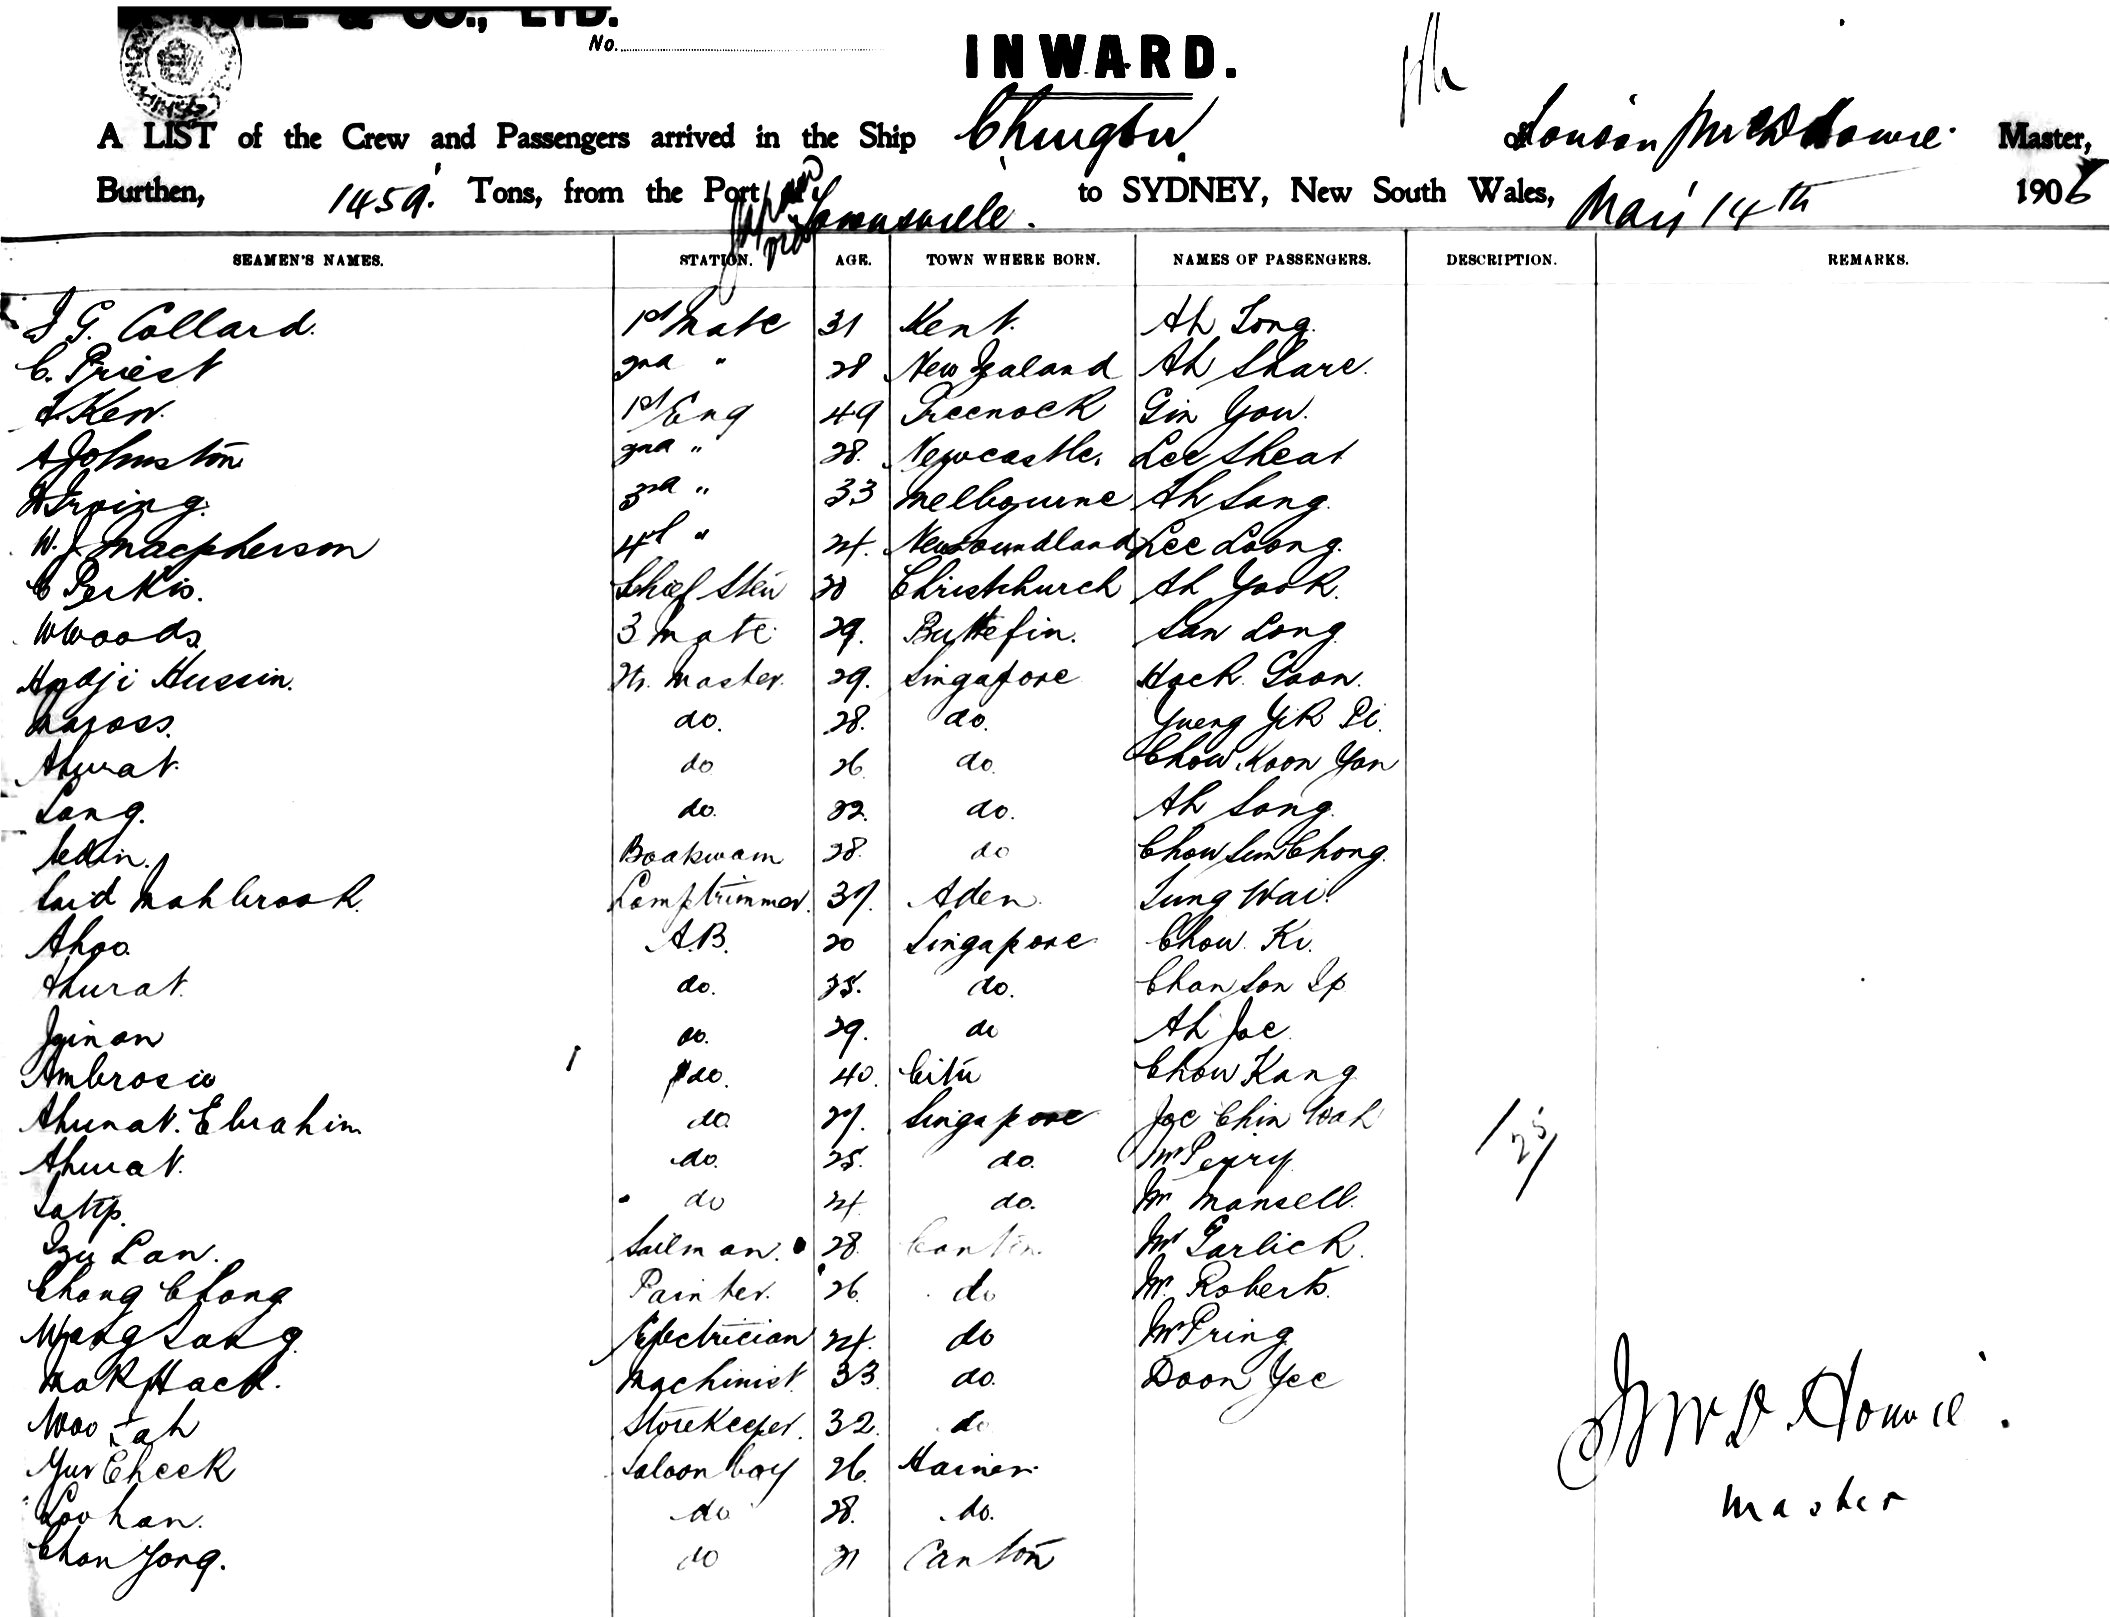 & CO., LTD.
No.
INWARD.
A LIST of the Crew and Passengers arrived in the Ship Chingtu of London J McD Howie Master,
Burthen, 1459 Tons, from the Port of Japan via Townsville. to SYDNEY, New South Wales, May 14th 1906
SEAMEN'S NAMES. STATION. AGE. TOWN WHERE BORN. NAMES OF PASSENGERS. DESCRIPTION. REMARKS.
G. Collard. 1st Mate 31 Kent. Ah Long.
C. Priest 2nd " 28 New Zealand Ah Share.
Kerr. 1st Eng 49 Greenock Gin You.
A Johnston 2nd " 28. Newcastle. Lee Sheat
Irving. 3rd " 33 Melbourne Ah Sang.
W. J. Macpherson 4th " 24. Newfoundland Lee Loong.
C Perkis. Chief Stew 28 Christchurch Ah Yook.
W Woods 3 Mate 29. San Long
Hadji Hussin. Qr. Master. 29. Singapore Hock Goon.
Maross. do. 28. do. Yueng Yik Pi.
Ahurat. do 26 do. Chow Koon Yan
Sang. do. 32. do. Ah Song.
28. do Chow Sum Chong.
Said Mahbrook. Lamptrimmer. 37. Aden. Sung Wai.
Ahoo. A.B. 20 Singapore Chow Ki.
Ahurat. do. 35. do. Chan Son Ip
Jginan do. 29. do Ah Joe.
Ambrosio do. 40. Citu Chow Kang
Ahunat. Ebrahim do. 27. Singapore Joe Chin Wah
Ahurat. do. 25. do. Mr Perry
Satip. do 24. do. Mr Mansell.
Lan. Sailman. 28. Canton. Mr Garlick.
Chong Chong Painter. 26. do Mr. Roberts.
Wong Sang. Electrician 24. do Mr Pring
Mok Hack. Machinist. 33. do. Doon Yee
Woo Fah Storekeeper. 32. do
Yuv Cheek Saloon boy 26. Hainan.
Loo han. do 28. do.
Chan Yong. do 21 Canton
1/25/
J McD Howie.
Master